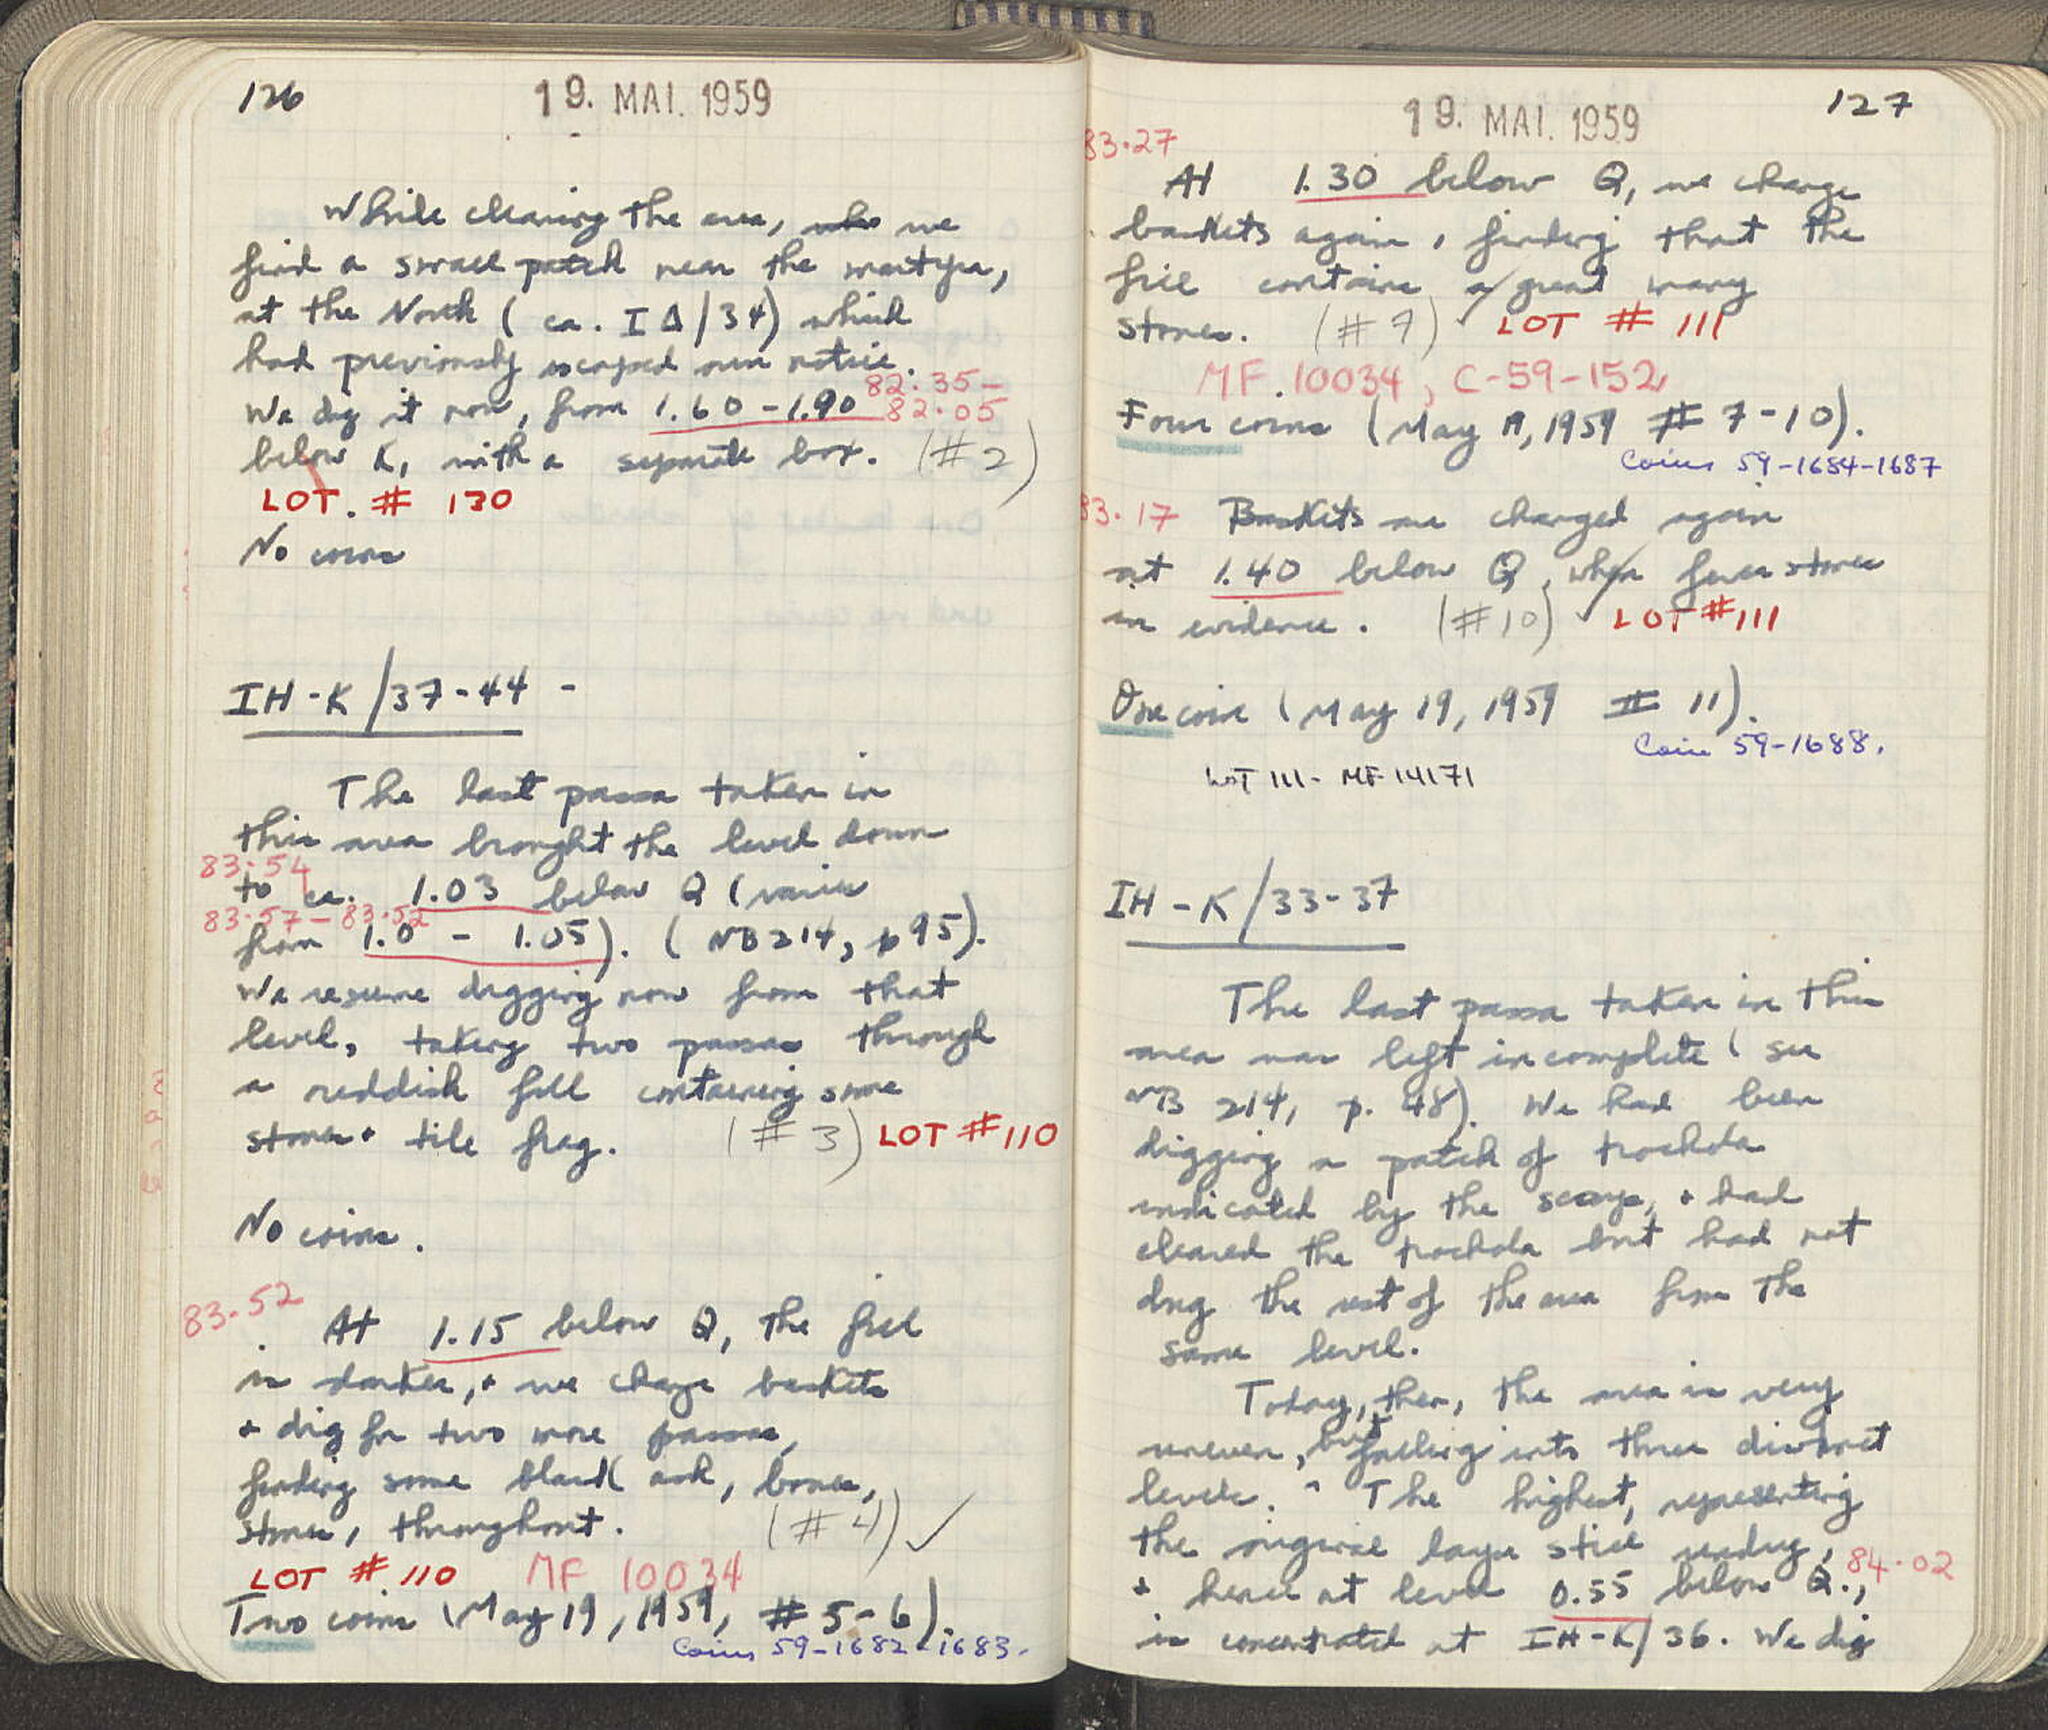 126
19. MAI. 1959
While cleaning the area, who we
find a small patch near the martyra,
at the North ( ca. I Δ/34) which
had previously escaped our notice.
82.35-
We dig it now, from 1.60-1.90 82.05
below K, with a separate box. (#2)
LOT. # 130
No coins
IH-K/37-44 -
The last passa taken in
this area brought the level down
83.54
to ca. 1.03 below Q (varies
83.57-83.52
from 1.0 - 1.05). (NB 214, p 95).
We resume digging now from that
level, taking two passas through
a reddish fill containing some
stones + tile frag. (#3) LOT #110
No coins.
83.52
At 1.15 below Q, the fill
is darker, + we change baskets
+ dig for two more passas,
finding some black ash, bones,
stones, throughout. (#4) ✓
LOT # 110 MF 10034
Two coins (May 19, 1959, # 5-6).
Coins 59-1682-1683.
127
19. MAI. 1959
83.27
At 1.30 below Q, we change
baskets again, finding that the
fill contains a great many
stones. (#7) ✓ LOT # 111
MF 10034, C-59-152
Four coins (May 19, 1959 # 7-10).
Coins 59-1684-1687
83.17 Baskets are changed again
at 1.40 below Q, when fewer stones
in evidence. (#10) ✓ LOT #111
One coin (May 19, 1959 # 11).
Coin 59-1688.
LOT 111- MF 14171
IH-K/33-37
The last passa taken in this
area was left incomplete (see
NB 214, p. 48). We had been
digging a patch of trochola
indicated by the scarp, + had
cleared the trochola but had not
dug the rest of the area from the
same level.
Today, then, the area is very
uneven, but falling into three distinct
levels. The highest, representing
the original layer still undug,
84.02
+ hence at level 0.55 below Q.,
is concentrated at IH-K/36. We dig